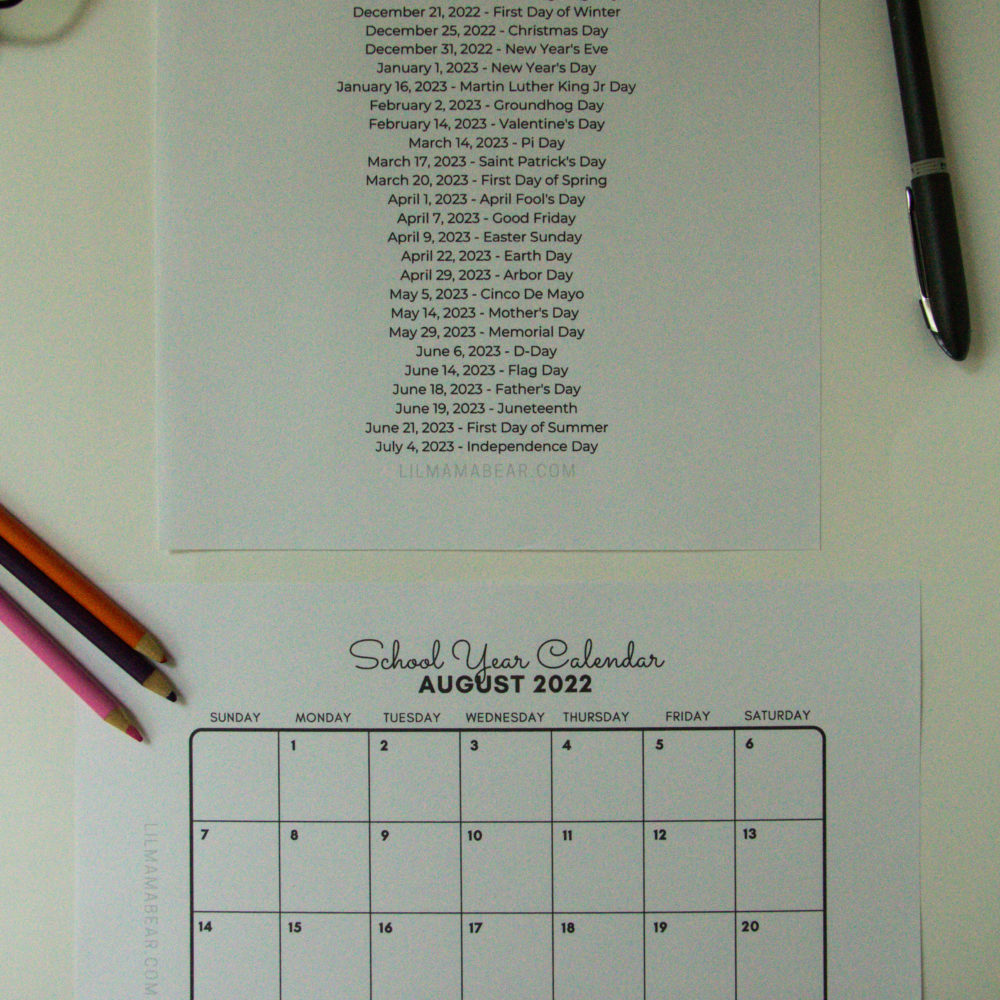 December 21, 2022 - First Day of Winter
December 25, 2022 - Christmas Day
December 31, 2022 - New Year's Eve
January 1, 2023 - New Year's Day
January 16, 2023 - Martin Luther King Jr Day
February 2, 2023 - Groundhog Day
February 14, 2023 - Valentine's Day
March 14, 2023 - Pi Day
March 17, 2023 - Saint Patrick's Day
March 20, 2023 - First Day of Spring
April 1, 2023 - April Fool's Day
April 7, 2023 - Good Friday
April 9, 2023 - Easter Sunday
April 22, 2023 - Earth Day
April 29, 2023 - Arbor Day
May 5, 2023 - Cinco De Mayo
May 14, 2023 - Mother's Day
May 29, 2023 - Memorial Day
June 6, 2023 - D-Day
June 14, 2023 - Flag Day
June 18, 2023 - Father's Day
June 19, 2023 - Juneteenth
June 21, 2023 - First Day of Summer
July 4, 2023 - Independence Day
LILMAMABEAR.COM
School Year Calendar
AUGUST 2022
SUNDAY MONDAY TUESDAY WEDNESDAY THURSDAY FRIDAY SATURDAY
1 2 3 4 5 6
7 8 9 10 11 12 13
14 15 16 17 18 19 20
LILMAMABEAR.COM